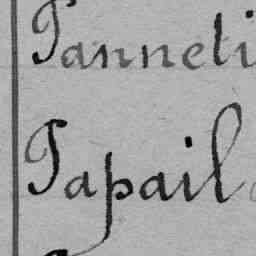 Panneti
Papail